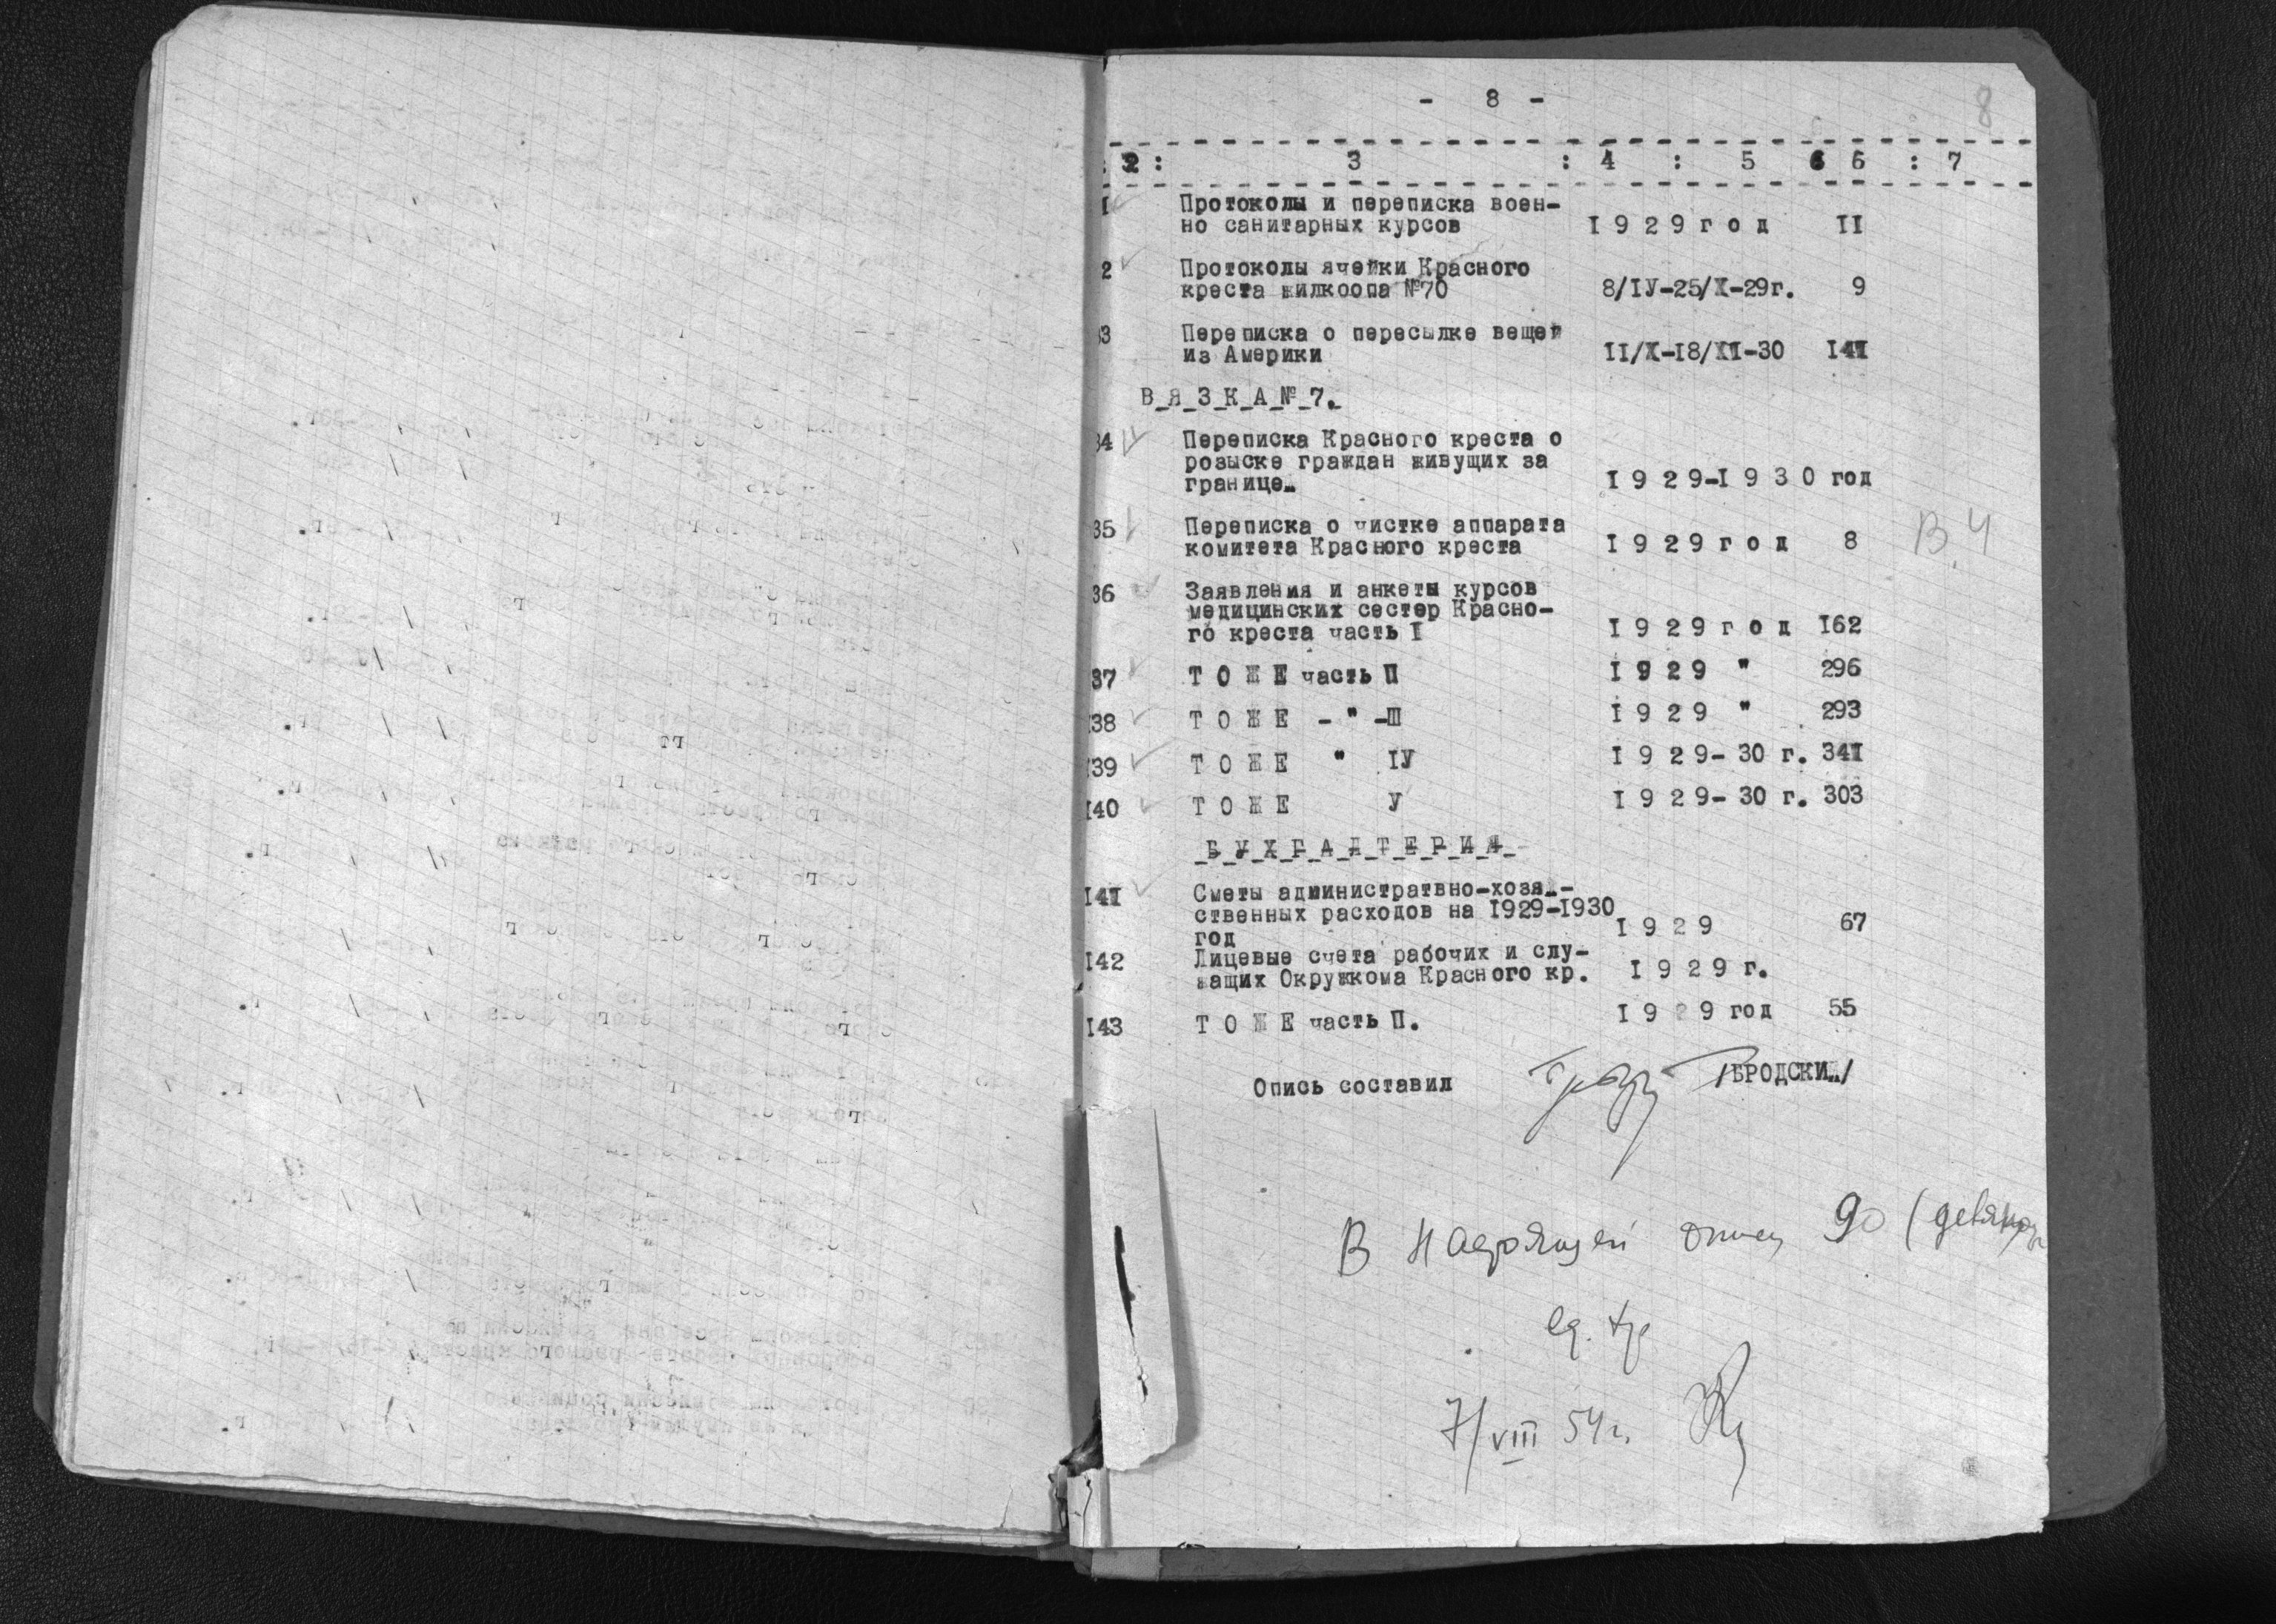 - 8 -
8
: 2 : 3 : 4 : 5 6 6 : 7
1 Протоколы и переписка воен-
но санитарных курсов 1 9 2 9 г о д II
2 Протоколы ячейки Красного
креста жилкоопа №70 8/IУ-25/X-29г. 9
33 Переписка о пересылке вещей
из Америки II/X-I8/XI-30 I4I
В Я З К А № 7.
34 Переписка Красного креста о
розыске граждан живущих за
границе. I 9 2 9-I 9 3 0 год
35 Переписка о чистке аппарата
комитета Красного креста I 9 2 9 г о д 8 В.Ч
36 Заявления и анкеты курсов
медицинских сестер Красно-
го креста часть I I 9 2 9 г о д I62
37 Т О Ж Е часть П I 9 2 9 " 296
138 Т О Ж Е - " -Ш I 9 2 9 " 293
139 Т О Ж Е " IУ I 9 2 9- 30 г. 34I
I40 Т О Ж Е У I 9 2 9- 30 г. 303
Б У Х Г А Л Т Е Р И Я
I4I Сметы администратвно-хозя -
ственных расходов на I929-I930
год I 9 2 9 67
I42 Лицевые счета рабочих и слу-
жащих Окружкома Красного кр. I 9 2 9 г.
I43 Т О Ж Е часть П. I 9 2 9 год 55
Опись составил /БРОДСКИЙ/
В настоящей описи 90 (девяносто
ед. хр
7/VIII 54 г.